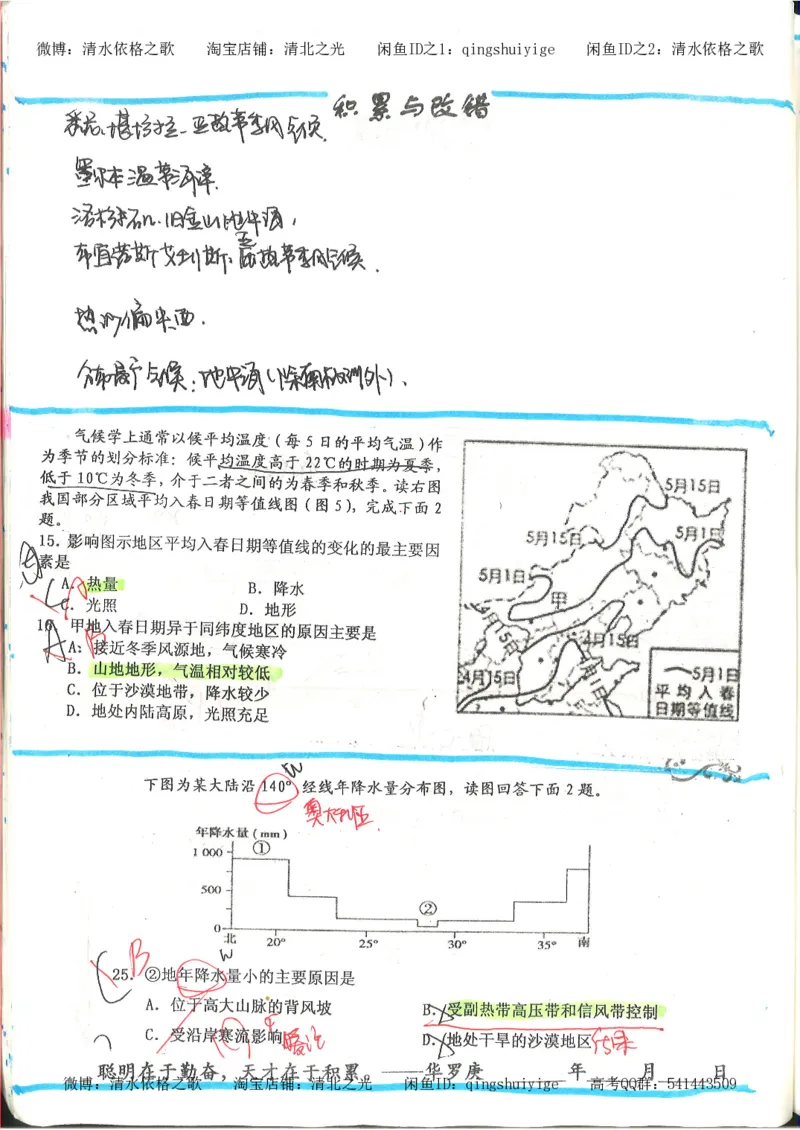 微博：清水依格之歌 淘宝店铺：清北之光 闲鱼ID之1：qingshuiyige 闲鱼ID之2：清水依格之歌
积累与改错
悉尼、堪培拉—亚热带季风气候.
墨尔本温带海洋.
洛杉矶、旧金山地中海，
布宜诺斯艾利斯、亚热带季风气候.
气候学上通常以候平均温度（每 5 日的平均气温）作
为季节的划分标准：候平均温度高于 22℃的时期为夏季，
低于 10℃为冬季，介于二者之间的为春季和秋季。读右图
我国部分区域平均入春日期等值线图（图 5），完成下面 2
题。
15．影响图示地区平均入春日期等值线的变化的最主要因
素是
A．热量 B．降水
C．光照 D．地形
16．甲地入春日期异于同纬度地区的原因主要是
A．接近冬季风源地，气候寒冷
B．山地地形，气温相对较低
C．位于沙漠地带，降水较少
D．地处内陆高原，光照充足
5月15日
5月15日
5月1日
5月1日
甲
4月15日
4月15日
4月15日
4月1日
5月1日
平均入春
日期等值线
下图为某大陆沿 140° 经线年降水量分布图，读图回答下面 2 题。
澳大利亚
年降水量（mm）
1 000
①
500
②
0
北 20° 25° 30° 35° 南
B
25．②地年降水量小的主要原因是
A．位于高大山脉的背风坡 B．受副热带高压带和信风带控制
C．受沿岸寒流影响 暖流 D．地处干旱的沙漠地区 结果
聪明在于勤奋，天才在于积累。——华罗庚 年 月 日
微博：清水依格之歌 淘宝店铺：清北之光 闲鱼ID：qingshuiyige 高考QQ群：541443509